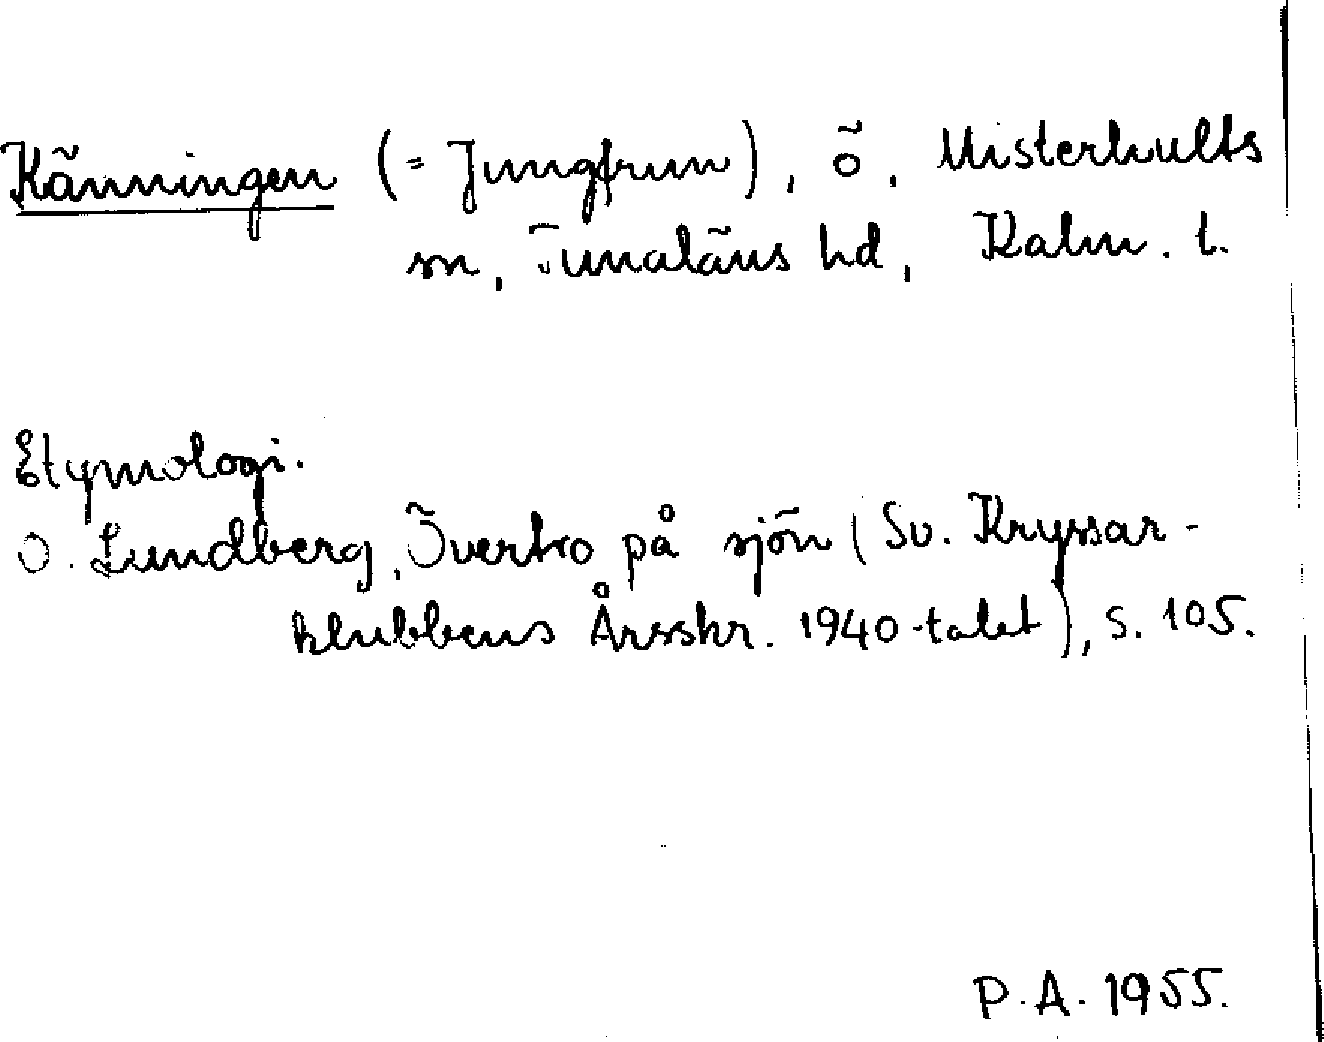 Känningen (= Jungfrun), ö, Misterhults
sn, Tunaläns hd, Kalm. l.
Etymologi.
O. Lundberg, Övertro på sjön (Sv. Kryssar-
klubbens Årsskr. 1940-talet), s. 105.
P.A. 1955.